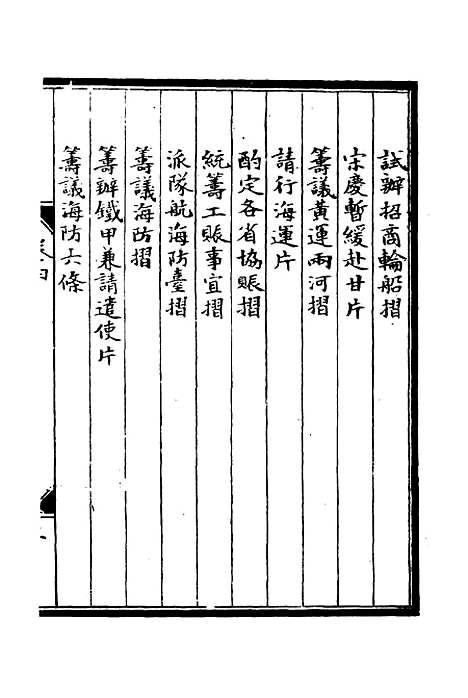 試辦招商輪船摺
宋慶暫緩赴甘片
籌議黃運兩河摺
請行海運片
酌定各省協賑摺
統籌工賑事宜摺
派隊航海防臺摺
籌議海防摺
籌辦鐵甲兼請遣使片
籌議海防六條